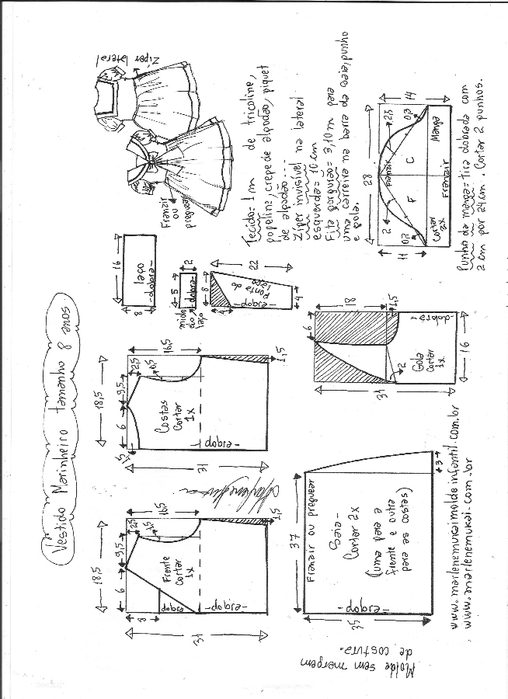 Vestido Marinheiro tamanho 8 anos.
Zíper
lateral
Franzir
ou
preguear
Tecido= 1 m de tricoline,
popeline, crepe de algodão, piquet
de algodão...
Zíper invisível na lateral
esquerda= 10 cm
Fita gorgurão= 3,10 m para
uma carreira na barra da saia, punho
e gola.
16
8
laço
-dobra-
5
2
miolo
do
laço
dobra
22
8
4
4
ponta do
laço
-dobra-
28
14
11
2
2,5
0,7
0,7
Franzir
F
C
Manga
Cortar
2x
Franzir
Punho da manga= tira dobrada com
2 cm por 24 cm. Cortar 2 punhos.
18,5
6
9,5
2,5
16,5
1,5
1,5
31
Costas
Cortar
1x
-dobra-
18
6
1,5
2
31
16
Gola
Cortar
1x
-dobra-
18,5
6
9,5
2,5
16,5
1,5
8
31
Frente
Cortar
1x
dobra
-dobra-
37
35
3
Franzir ou preguear
Saia-
Cortar 2x
(uma para a
frente e outra
para as costas)
-dobra-
Molde sem margem
de costura.
www.marlenemukaimoldeinfantil.com.br
www.marlenemukai.com.br